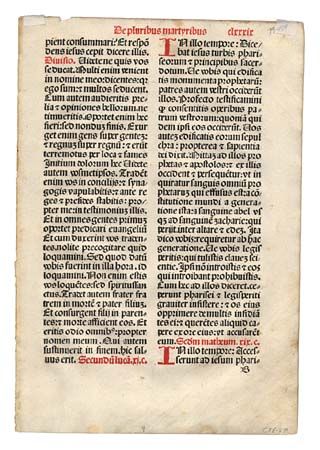 De pluribus martyribus clxxxix
pient consummari. Et respõ
dens iesus cepit dicere illis.
Divisio. Uidete ne quis vos
seducat. Multi enim venient
in nomine meo dicentes: quia
ego sum: et multos seducent.
Cum autem audieritis prelia
et opiniones bellorum: ne
timueritis. Oportet enim hec
fieri: sed nondũ finis. Exur
get enim gens super gentẽ:
et regnum super regnũ: et erũt
terremotus per loca et fames
Initium dolorum hec. Uidete
autem vosmetipsos. Tradẽt
enim vos in conciliis: et syna
gogis vapulabitis: et ante re
ges et presides stabitis: pro
pter me: in testimonium illis.
Et in omnes gentes primum
oportet predicari euangeliũ
Et cum duxerint vos traden
tes: nolite precogitare quid
loquamini. Sed quod datũ
vobis fuerit in illa hora. id
loquimini. Non enim estis
vos loquẽtes: sed spiritussan
ctus. Tradet autem frater fra
trem in mortem: et pater filium.
Et consurgent filii in paren
tes: et morte afficient eos. Et
eritis odio omnibꝰ: propter
nomen meum. Qui autem
sustinuerit in finem. hic sal
uus erit. Secundũ lucã. xi. c.
IN illo tempore: Dice
bat iesus turbis phari
seorum et principibus sacer
dotum. Ue vobis qui edifica
tis monumenta prophetarũ:
patres autem vestri occiderũt
illos. Profecto testificamini
qp consentitis operibus pa
trum vestrorum: quoniã qui
dem ipsi eos occiderũt. Uos
autẽ edificatis eorum sepul
chra: propterea et sapientia
dei dixit. Mittã ad illos pro
phetas et apostolos: et ex illis
occident et persequẽtur: vt in
quiratur sanguis omniũ pro
phetarum qui effusus est a cõsti
tutione mundi a generatione
ista: a sanguine abel vs
qz ad sanguinẽ zacharie: qui
periit inter altare et edẽ. Ita
dico vobis: requiretur ab hac
generatione. Ue vobis legis
peritis: qui tulistis clauẽ sci
entie. Ipsi nõ introistis: et eos
qui introibant prohibuistis.
Cum hec ad illos diceret: ce
perunt pharisei et legisperiti
grauiter insistere: et os eius
opprimere de multis insidiã
tes ei: et querẽtes aliquid ca
pere ex ore eius: vt accusarẽt
eum. Scdm matheum. xix. c.
IN illo tempore: Acces
serunt ad iesum phari